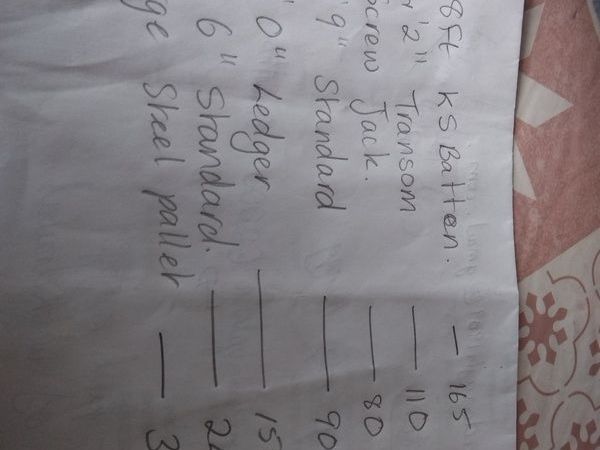 8ft KS Batten. — 165
'2" Transom — 110
Screw Jack. — 80
'9" Standard — 90
'0" Ledger — 15
6" Standard. — 2
ge Steel pallet — 3